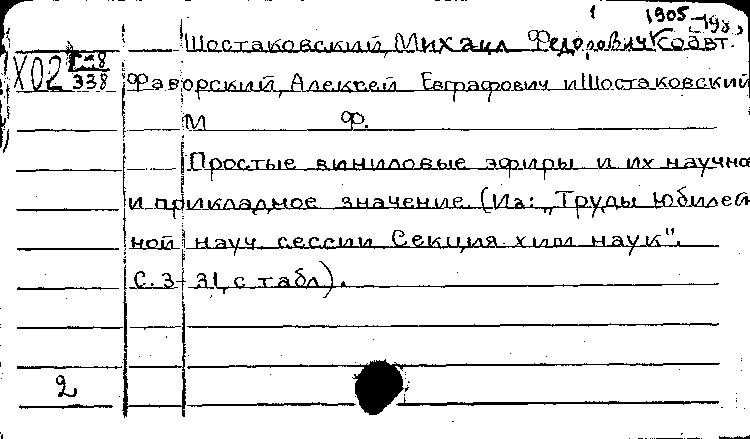 1905-198
Шостаковский, Михаил Федорович Соавт.
Х02 338
Фаворский, Алексей Евграфович и Шостаковский
М Ф.
Простые виниловые эфиры и их научно
и прикладное значение. (Из: „Труды юбилей
ной науч. сессии Секция хим наук".
С. 3-31, с табл).
2